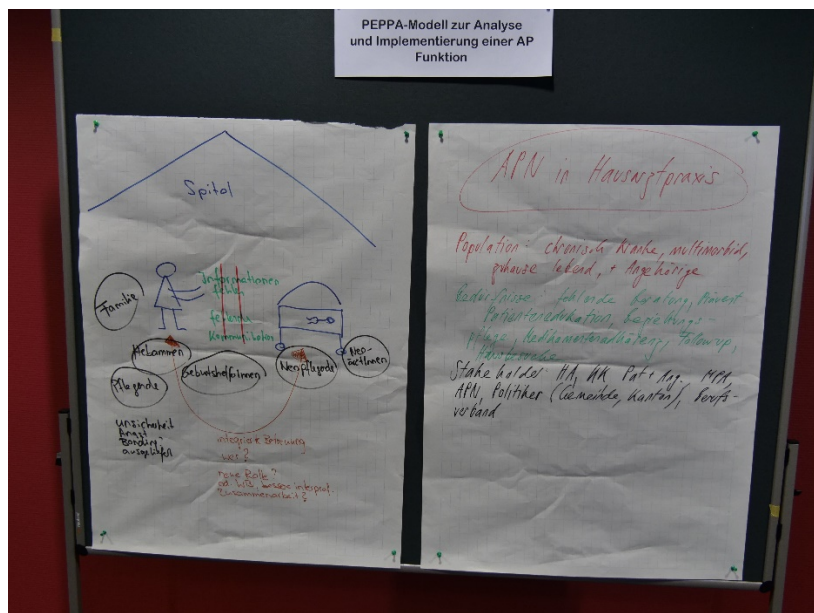 PEPPA-Modell zur Analyse
und Implementierung einer AP
Funktion
Spital
Informationen
fehlen
fehlende
Kommunikation
Familie
Hebammen
Pflegende
Geburtshelferinnen
Neopflegende
Neo-
ärztInnen
unsicherheit
Angst
Bonding
ausgeliefert
integrierte Betreuung
wer?
neue Rolle?
od. WB, bessere interprof.
Zusammenarbeit?
APN in Hausarztpraxis
Population: chronisch Kranke, multimorbid,
zuhause lebend, + Angehörige
Bedürfnisse: fehlende Beratung, Prävent
Patientenedukation, Beziehungs-
pflege, Medikamentenadhärenz, Followup,
Hausbesuche
Stakeholder: HA, KK Pat + Ang. MPA,
APN, Politiker (Gemeinde, Kanton), Berufs-
verband